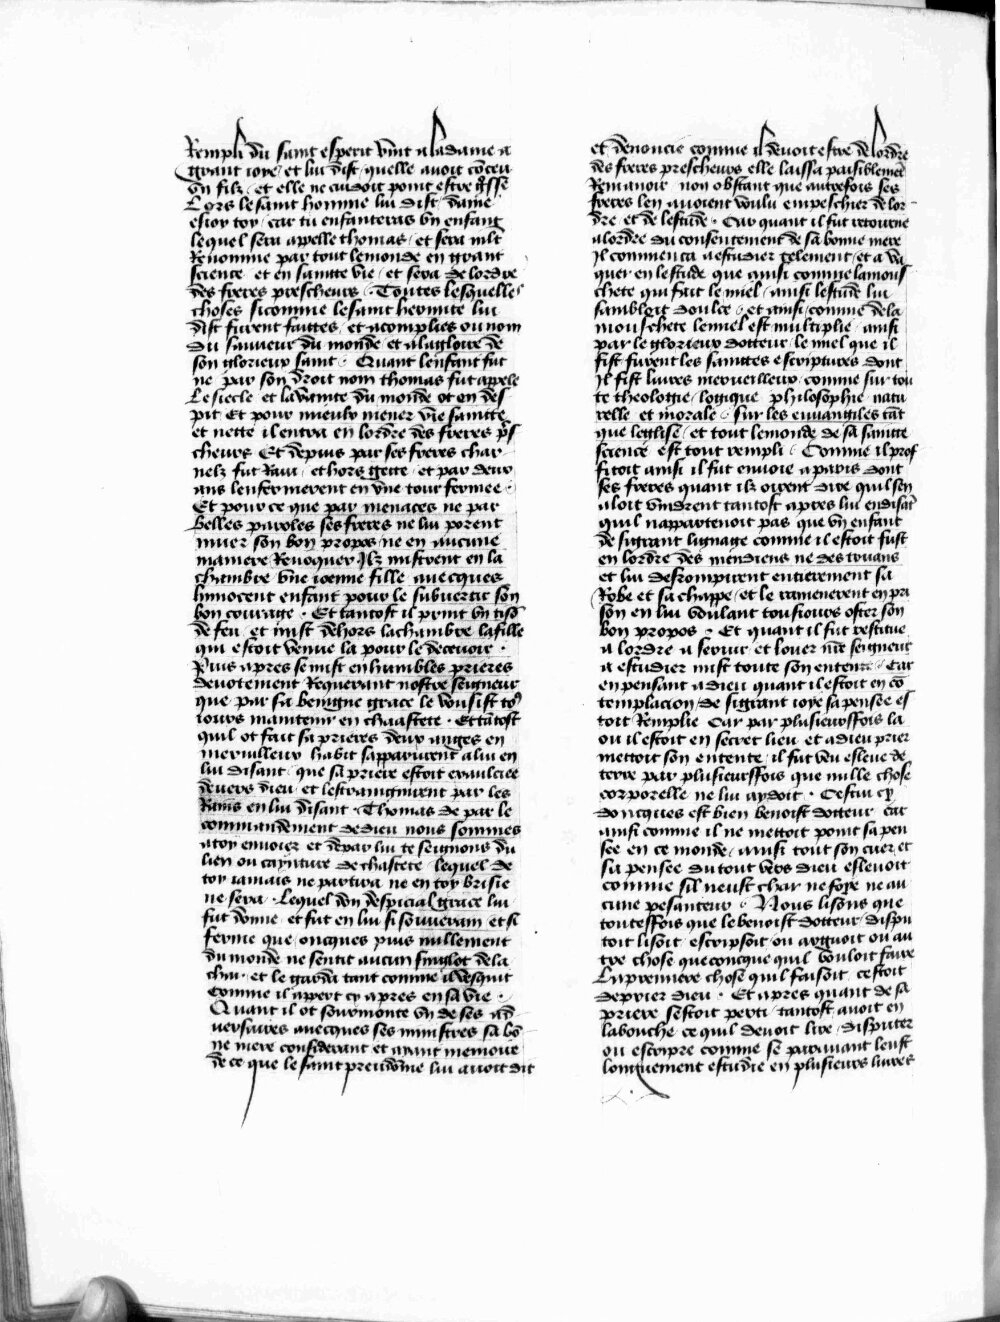 Rempli du saint esperit vint a la dame a
grant ioye et lui dist quelle auoit cōceu
vn filz et elle ne cuidoit point estre grosse
Lors le saint homme lui dist dame
esioy toy car tu enfanteras vn enfant
lequel sera appelle thomas et sera mlt
Renomme par tout le monde en grant
science et en saincte vie et sera de lordre
des freres prescheurs Toutes lesquelles
choses si comme le saint hermite lui
dist furent faictes et acomplies ou nom
du sauueur du monde et a la gloire de
son glorieux saint Quant lenfant fut
ne par son droit nom thomas fut apele
Le siecle et la vanite du monde ot en des
pit Et pour mieulx mener vie saincte
et nette il entra en lordre des freres p̄s
cheurs Et depuis par ses freres char
nelz fut Raui et hors gette et par deux
ans lenfermerent en vne tour fermee
Et pour ce que par menaces ne par
belles paroles ses freres ne lui porent
muer son bon propos ne en aucune
maniere Reuoquer Ilz mistrent en la
chambre vne ioenne fille auecques
linnocent enfant pour le subuertir son
bon courage Et tantost il print vn tisō
de feu et mist dehors la chambre la fille
qui estoit venue la pour le deceuoir
Puis apres se mist en humbles prieres
deuotement Requerant nostre seigneur
que par sa benigne grace le voulsist to9
iours maintenir en chaastete Et tātost
quil ot fait sa prieres deux anges en
merueilleux habit sapparurent a lui en
lui disant que sa priere estoit exaulciee
deuers dieu et lestraingnirent par les
Rains en lui disant Thomas de par le
commandement de dieu nous sommes
a toy enuoiez et de par lui te seignons du
lien ou caynture de chastete lequel de
toy iamais ne partira ne en toy brisie
ne sera Lequel don despicial grace lui
fut donne et fut en lui si souuerain et si
ferme que oncques puis nullement
du monde ne sentit aucun de la
char et le garda tant comme il vesquit
comme il appert cy apres en sa vie
Quant il ot sourmonte vn de ses ad
uersaires auecques ses ministres sa bō
ne mere considerant et ayant memoire
de ce que le saint preudōme lui auoit dit
et denoncie comme il deuoit estre de lordre
des freres prescheurs elle laissa paisiblemēt
Remanoir non obstant que autrefois ses
freres len auoient voulu empeschier de lor
dre et de lestude Car quant il fut retourne
a lordre du consentement de sa bonne mere
Il commenca a estudier telement et a va
quer en lestude que ainsi comme la mous
chete qui fait le miel ainsi lestude lui
sambloit doulce et ainsi comme de la
mouschete le miel est multiplie ainsi
par le glorieux docteur le miel que il
fist furent les sainctes escriptures dont
Il fist liures merueilleux comme sur tou
te theologie logique philosophie natu
relle et morale sur les euuangiles tāt
que leglise et tout le monde de sa saincte
science est tout rempli Comme il prof
fitoit ainsi il fut enuoie a paris dont
ses freres quant ilz oirent dire quil sen
aloit vindrent tantost apres lui en disāt
quil nappartenoit pas que vn enfant
de si grant lignage comme il estoit fust
en lordre des mendiens ne des truans
et lui desrompirent entierement sa
Robe et sa chappe et le ramenerent en pri
son en lui voulant tousiours oster son
bon propos Et quant il fut restitue
a lordre a seruir et louer nr̄e seigneur
a estudier mist toute son entente Car
en pensant a dieu quant il estoit en cō
templacion de si grant ioye sa pensee es
toit Remplie Car par plusieurs fois la
ou il estoit en secret lieu et a dieu prier
mettoit son entente il fut veu esleue de
terre par plusieurs fois que nulle chose
corporelle ne lui aydoit Cestui cy
doncques est bien benoist docteur car
ainsi comme il ne mettoit point sa pen
see en ce monde ainsi tout son cuer et
sa pensee du tout vers dieu esleuoit
comme sil neust char ne foye ne au
cune pesanteur Nous lisons que
toutesfois que le benoist docteur dispu
toit lisoit escripsoit ou arguoit ou au
tre chose queconcque quil vouloit faire
La premiere chose quil faisoit cestoit
de prier dieu Et apres quant de sa
priere sestoit parti tantost auoit en
la bouche ce quil deuoit lire disputer
ou escripre comme se parauant leust
longuement estudie en plusieurs liures